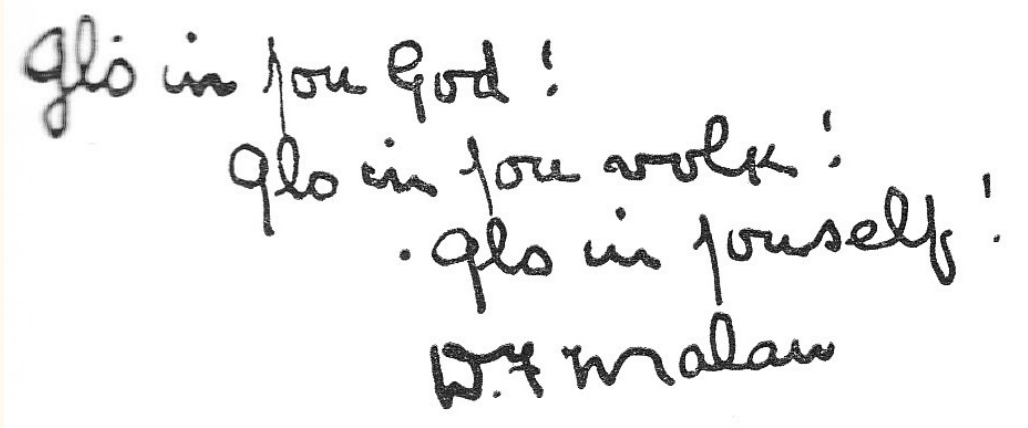 Glo in jou God!
Glo in jou volk!
Glo in jouself!
D.F Malan